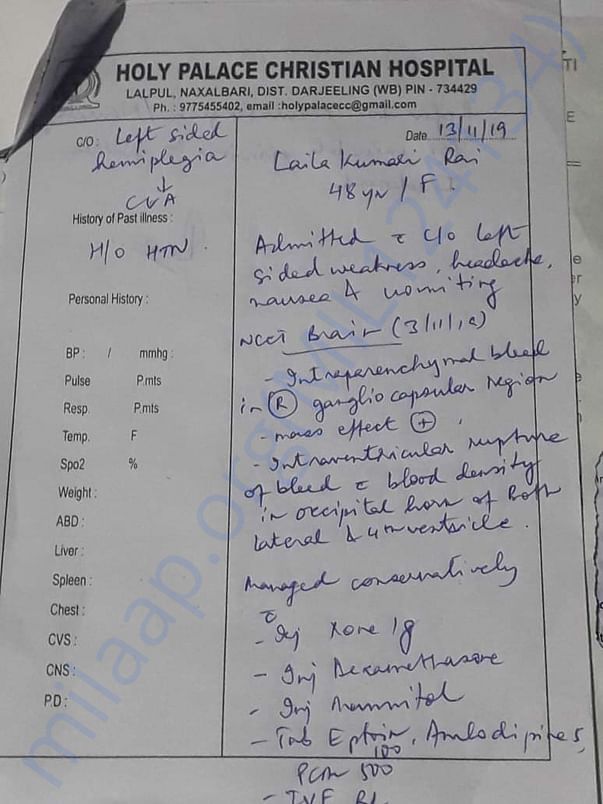 HOLY PALACE CHRISTIAN HOSPITAL
LALPUL, NAXALBARI, DIST. DARJEELING (WB) PIN - 734429
Ph. : 9775455402, email :holypalacecc@gmail.com
C/O: Left sided
hemiplegia
↓
CVA
History of Past illness :
H/o HTN.
Personal History :
BP : / mmhg :
Pulse P.mts
Resp. P.mts
Temp. F
Spo2 %
Weight :
ABD :
Liver :
Spleen :
Chest :
CVS :
CNS :
P.D :
Date 13/11/19
Laila Kumari Rai
48 yr / F.
Admitted c̄ c/o left
sided weakness, headache,
nausea & vomiting
NCCT Brain (3/11/19)
- Intraparenchymal bleed
in (R) ganglio capsular region
- mass effect (+)
- Intraventricular rupture
of bleed c̄ blood density
in occipital horn of both
lateral & 4th ventricle.
Managed conservatively
c̄
- Inj Xone 1g
- Inj Dexamethasone
- Inj Mannitol
- Tab Eptoin 100, Amlodipine 5,
PCM 500
- IVF RL
milaap.org